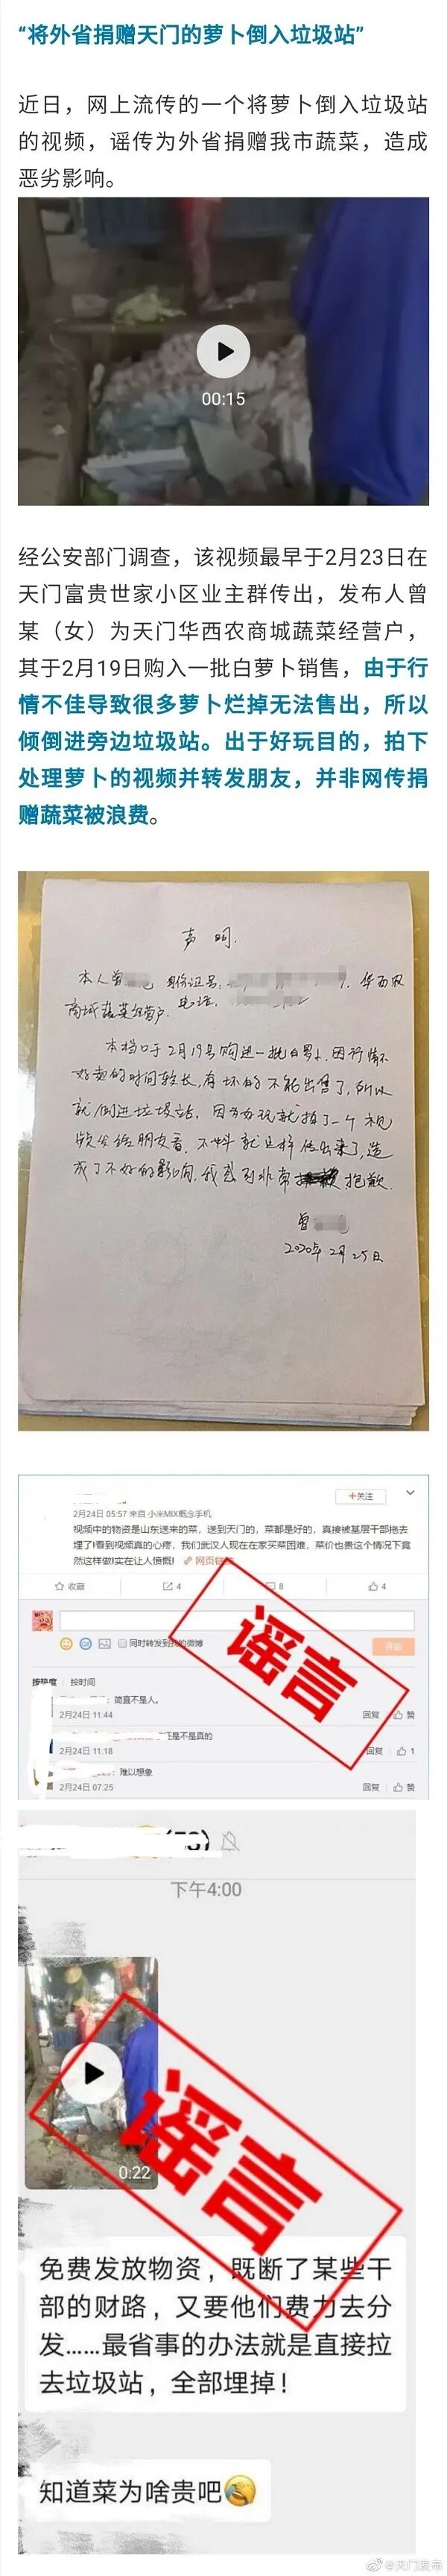 “将外省捐赠天门的萝卜倒入垃圾站”
近日，网上流传的一个将萝卜倒入垃圾站
的视频，谣传为外省捐赠我市蔬菜，造成
恶劣影响。
00:15
经公安部门调查，该视频最早于2月23日在
天门富贵世家小区业主群传出，发布人曾
某（女）为天门华西农商城蔬菜经营户，
其于2月19日购入一批白萝卜销售，由于行
情不佳导致很多萝卜烂掉无法售出，所以
倾倒进旁边垃圾站。出于好玩目的，拍下
处理萝卜的视频并转发朋友，并非网传捐
赠蔬菜被浪费。
声 明.
本人曾 身份证号: 华西农
商城蔬菜经营户. 电话.
本档口于2月19号购进一批白萝卜.因行情不
好卖的时间较长,有坏的不能出售了,所以
就倒进垃圾站,因为好玩就拍了一个视
频发给朋友看.不料就这样传出来了,造
成了不好的影响,我感到非常 抱歉.
曾
2020年2月25日
+关注
2月24日 05:57 来自 小米MIX概念手机
视频中的物资是山东送来的菜，送到天门的，菜都是好的，真接被基层干部拖去
埋了!看到视频真的心疼，我们武汉人现在在家买菜困难，菜价也贵这个情况下竟
然这样做!实在让人愤慨! 网页
收藏 4 8 4
谣言
同时转发到我的微博
评论
按热度 按时间
简直不是人。
2月24日 11:44 回复 赞
是不是真的
2月24日 11:18 回复 1
：难以想象
2月24日 07:25 回复 赞
下午4:00
0:22
谣言
免费发放物资，既断了某些干
部的财路，又要他们费力去分
发......最省事的办法就是直接拉
去垃圾站，全部埋掉！
知道菜为啥贵吧😂
@天门发布